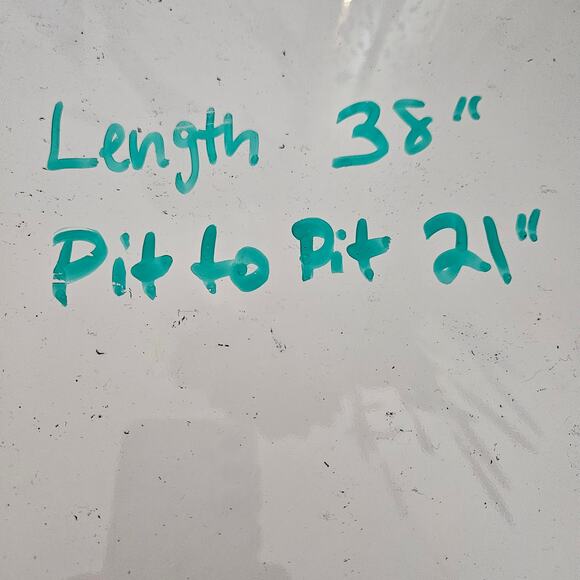 Length 38"
Pit to Pit 21"